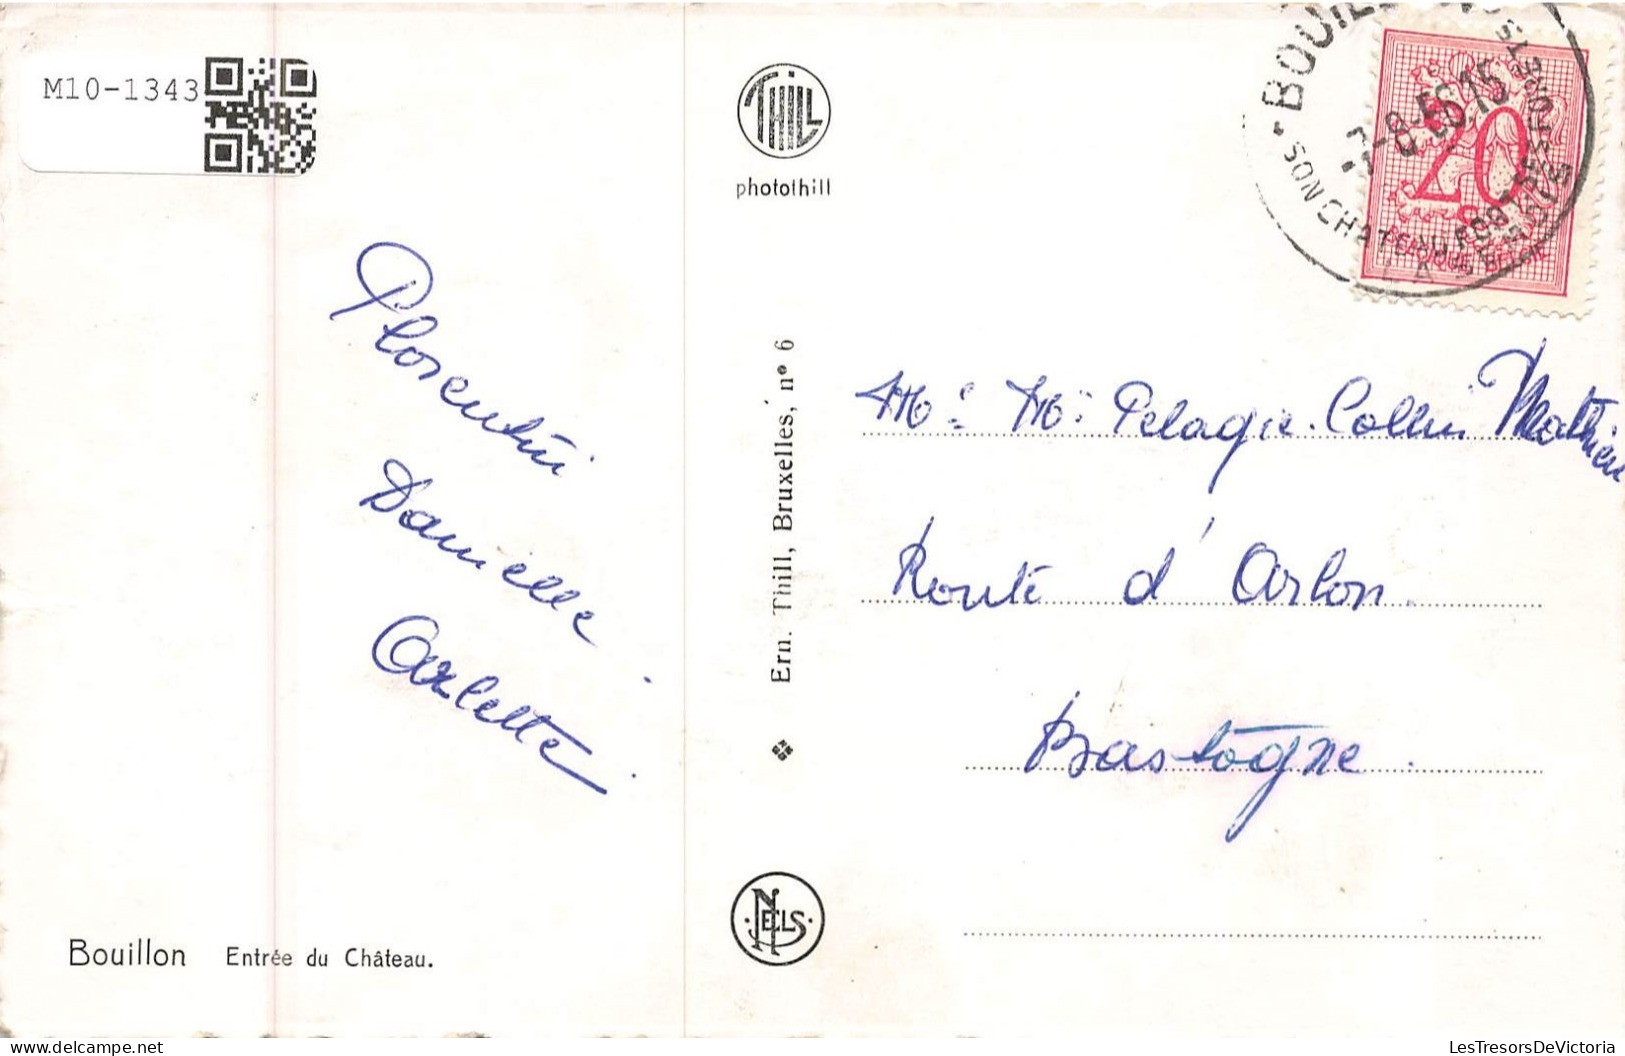 M10-1343
THILL
photothill
BOUILLON
-7-8-56.15
SON CHATEAU FORT
20
BELGIQUE BELGIE
Florentin
Danielle
Arlette
Ern. Thill, Bruxelles, nº 6
Pelagie. Collin Mathieu
Route d'Arlon.
Bastogne.
NELS
Bouillon Entrée du Château.
LesTresorsDeVictoria.com
LesTresorsDeVictoria